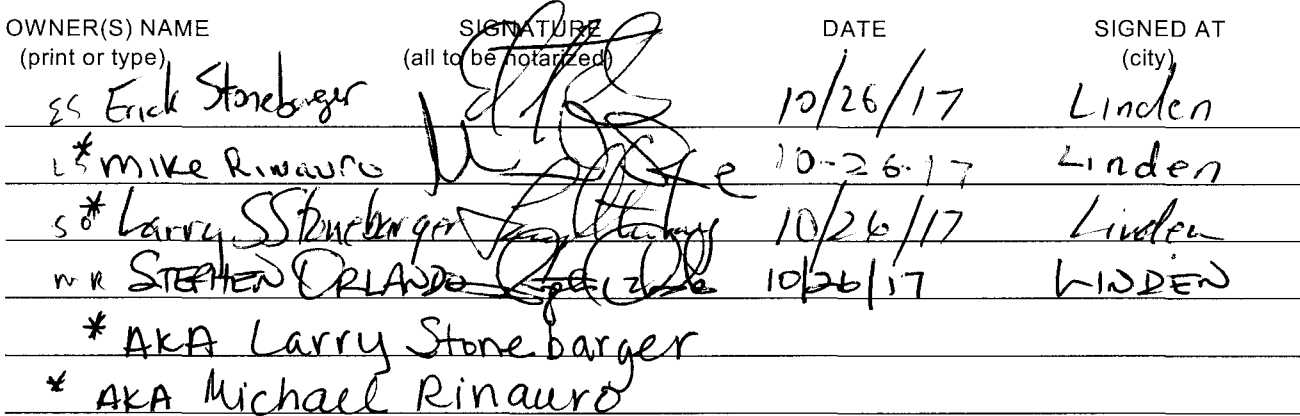 OWNER(S) NAME SIGNATURE DATE SIGNED AT
(print or type) (all to be notarized) (city)
ES Erick Stonebarger 10/26/17 Linden
LS * MIKE RINAURO 10-26-17 Linden
SO * Larry S Stonebarger 10/26/17 Linden
MR STEPHEN ORLANDO 10/26/17 LINDEN
* AKA Larry Stonebarger
* AKA Michael Rinauro